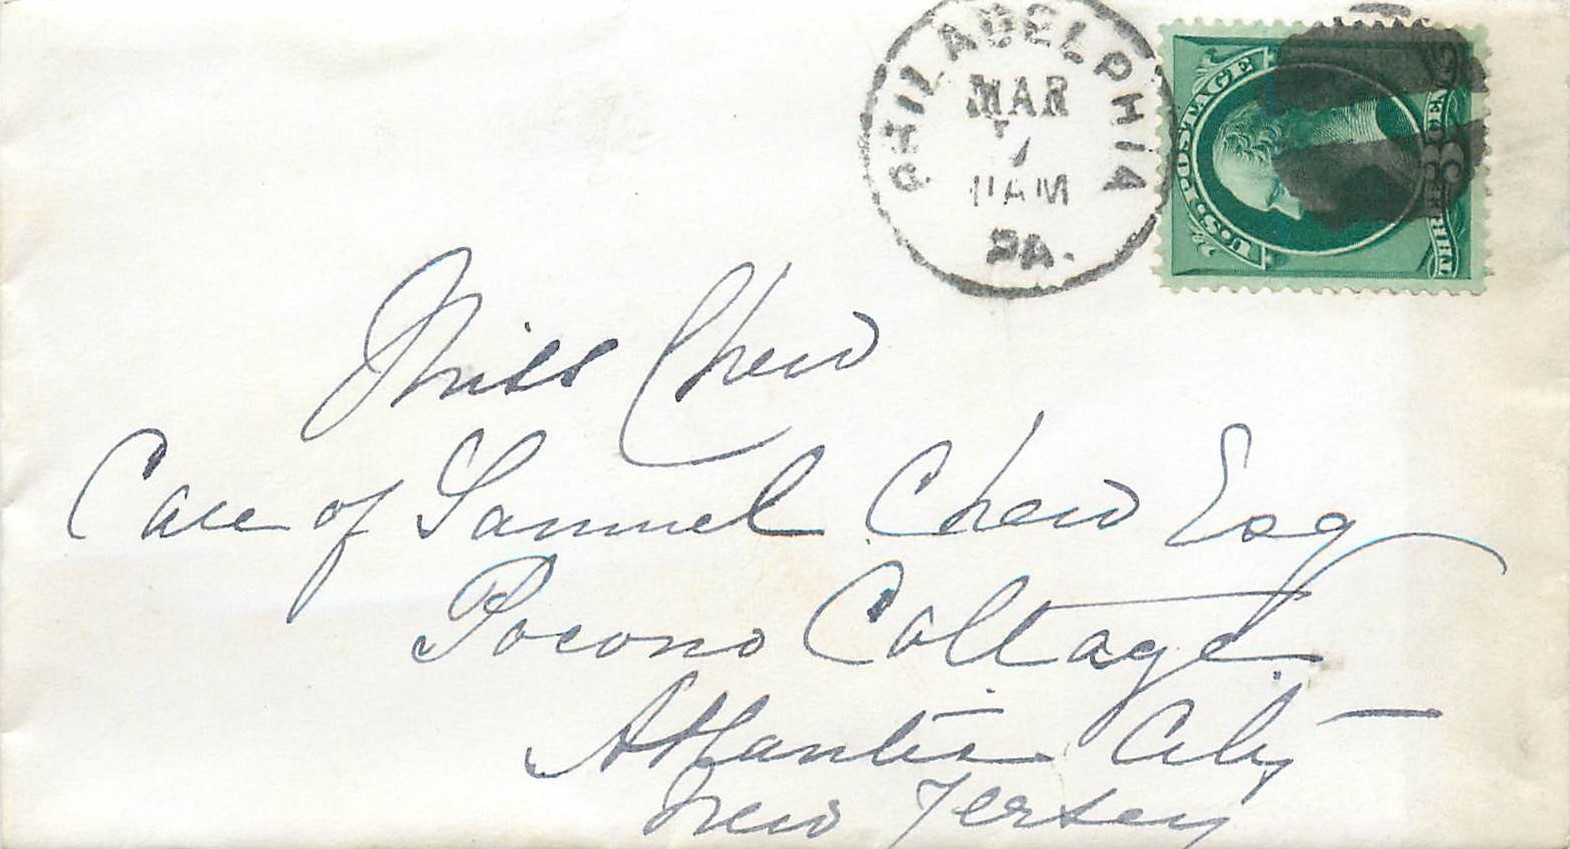 PHILADELPHIA
MAR
11 AM
PA.
U.S. POSTAGE
THREE 3 CENTS
Miss Chew
Care of Samuel Chew Esq
Pocono Cottage
Atlantic City
New Jersey